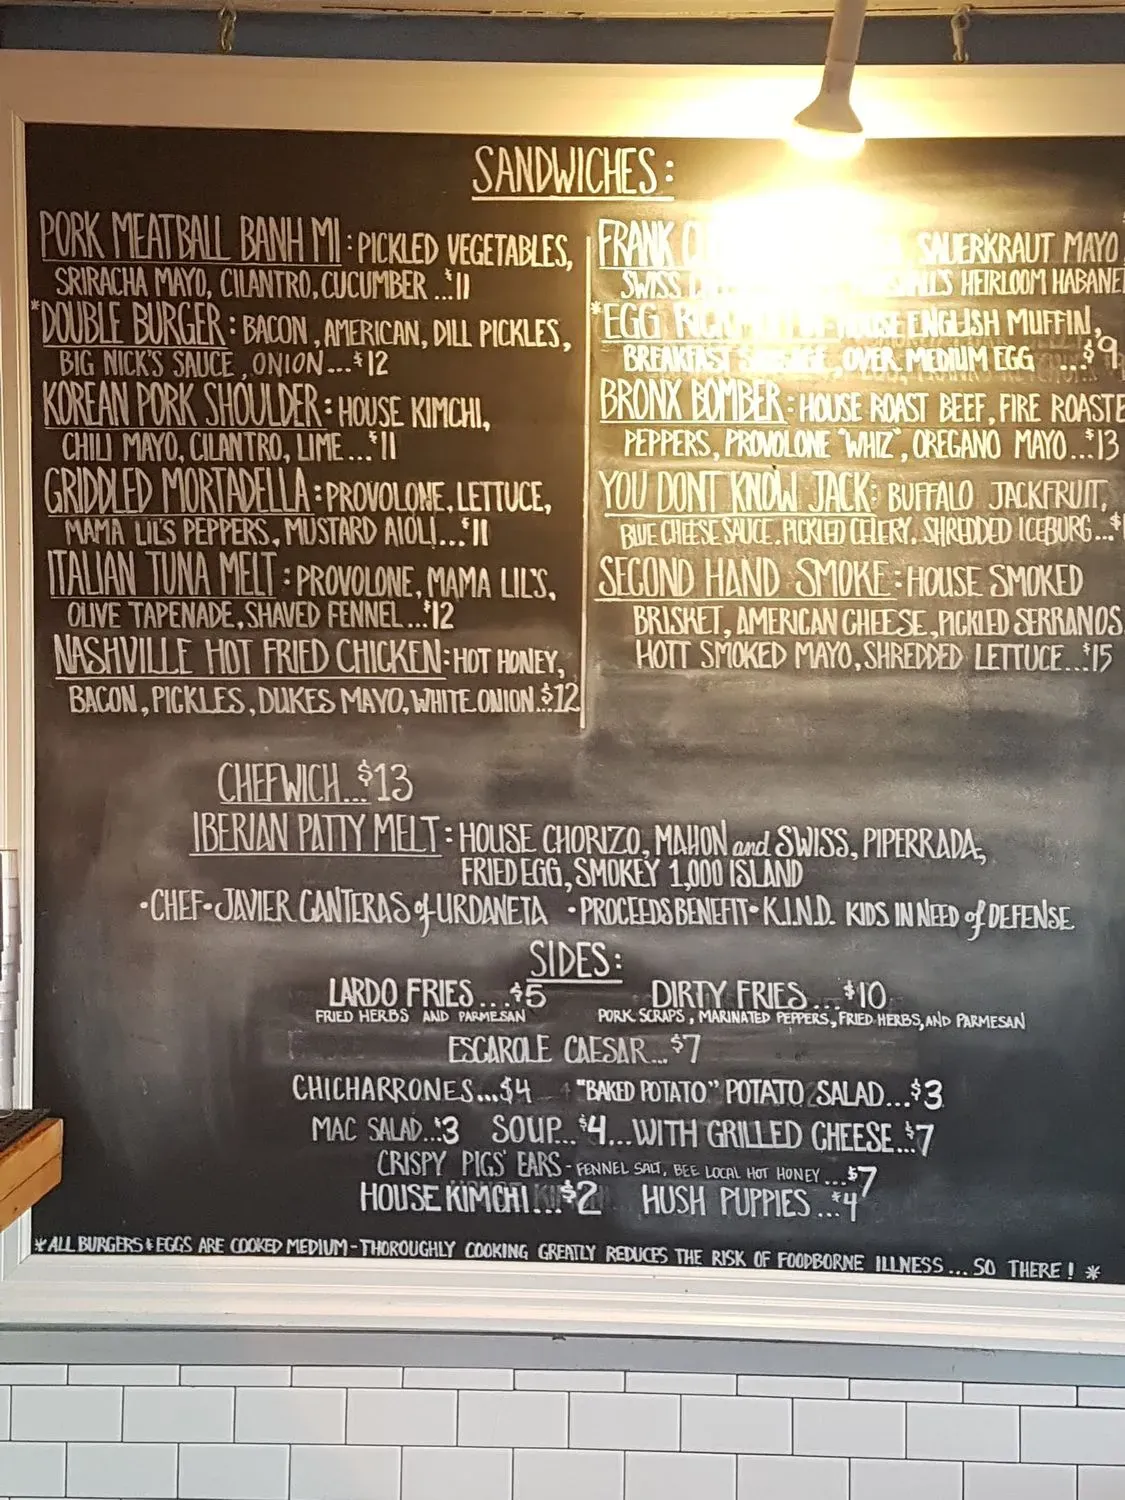 SANDWICHES:
PORK MEATBALL BANH MI: PICKLED VEGETABLES,
SRIRACHA MAYO, CILANTRO, CUCUMBER ...$11
*DOUBLE BURGER: BACON, AMERICAN, DILL PICKLES,
BIG NICK'S SAUCE, ONION...$12
KOREAN PORK SHOULDER: HOUSE KIMCHI,
CHILI MAYO, CILANTRO, LIME...$11
GRIDDLED MORTADELLA: PROVOLONE, LETTUCE,
MAMA LIL'S PEPPERS, MUSTARD AIOLI...$11
ITALIAN TUNA MELT: PROVOLONE, MAMA LIL'S,
OLIVE TAPENADE, SHAVED FENNEL...$12
NASHVILLE HOT FRIED CHICKEN: HOT HONEY,
BACON, PICKLES, DUKES MAYO, WHITE ONION..$12
FRANK SAUERKRAUT MAYO
SWISS HEIRLOOM HABANE
*EGG ENGLISH MUFFIN,
BREAKFAST SAUSAGE, OVER MEDIUM EGG ...$9
BRONX BOMBER: HOUSE ROAST BEEF, FIRE ROASTE
PEPPERS, PROVOLONE "WHIZ", OREGANO MAYO...$13
YOU DONT KNOW JACK: BUFFALO JACKFRUIT,
BLUE CHEESE SAUCE, PICKLED CELERY, SHREDDED ICEBURG...$
SECOND HAND SMOKE: HOUSE SMOKED
BRISKET, AMERICAN CHEESE, PICKLED SERRANOS
HOTT SMOKED MAYO, SHREDDED LETTUCE...$15
CHEFWICH...$13
IBERIAN PATTY MELT: HOUSE CHORIZO, MAHON and SWISS, PIPERRADA,
FRIED EGG, SMOKEY 1,000 ISLAND
•CHEF•JAVIER CANTERAS of URDANETA •PROCEEDS BENEFIT• K.I.N.D. KIDS IN NEED of DEFENSE
SIDES:
LARDO FRIES...$5 DIRTY FRIES...$10
FRIED HERBS AND PARMESAN PORK SCRAPS, MARINATED PEPPERS, FRIED HERBS, AND PARMESAN
ESCAROLE CAESAR...$7
CHICHARRONES...$4 "BAKED POTATO" POTATO SALAD...$3
MAC SALAD...$3 SOUP...$4...WITH GRILLED CHEESE..$7
CRISPY PIGS' EARS - FENNEL SALT, BEE LOCAL HOT HONEY...$7
HOUSE KIMCHI...$2 HUSH PUPPIES...$4
*ALL BURGERS & EGGS ARE COOKED MEDIUM - THOROUGHLY COOKING GREATLY REDUCES THE RISK OF FOODBORNE ILLNESS... SO THERE! *